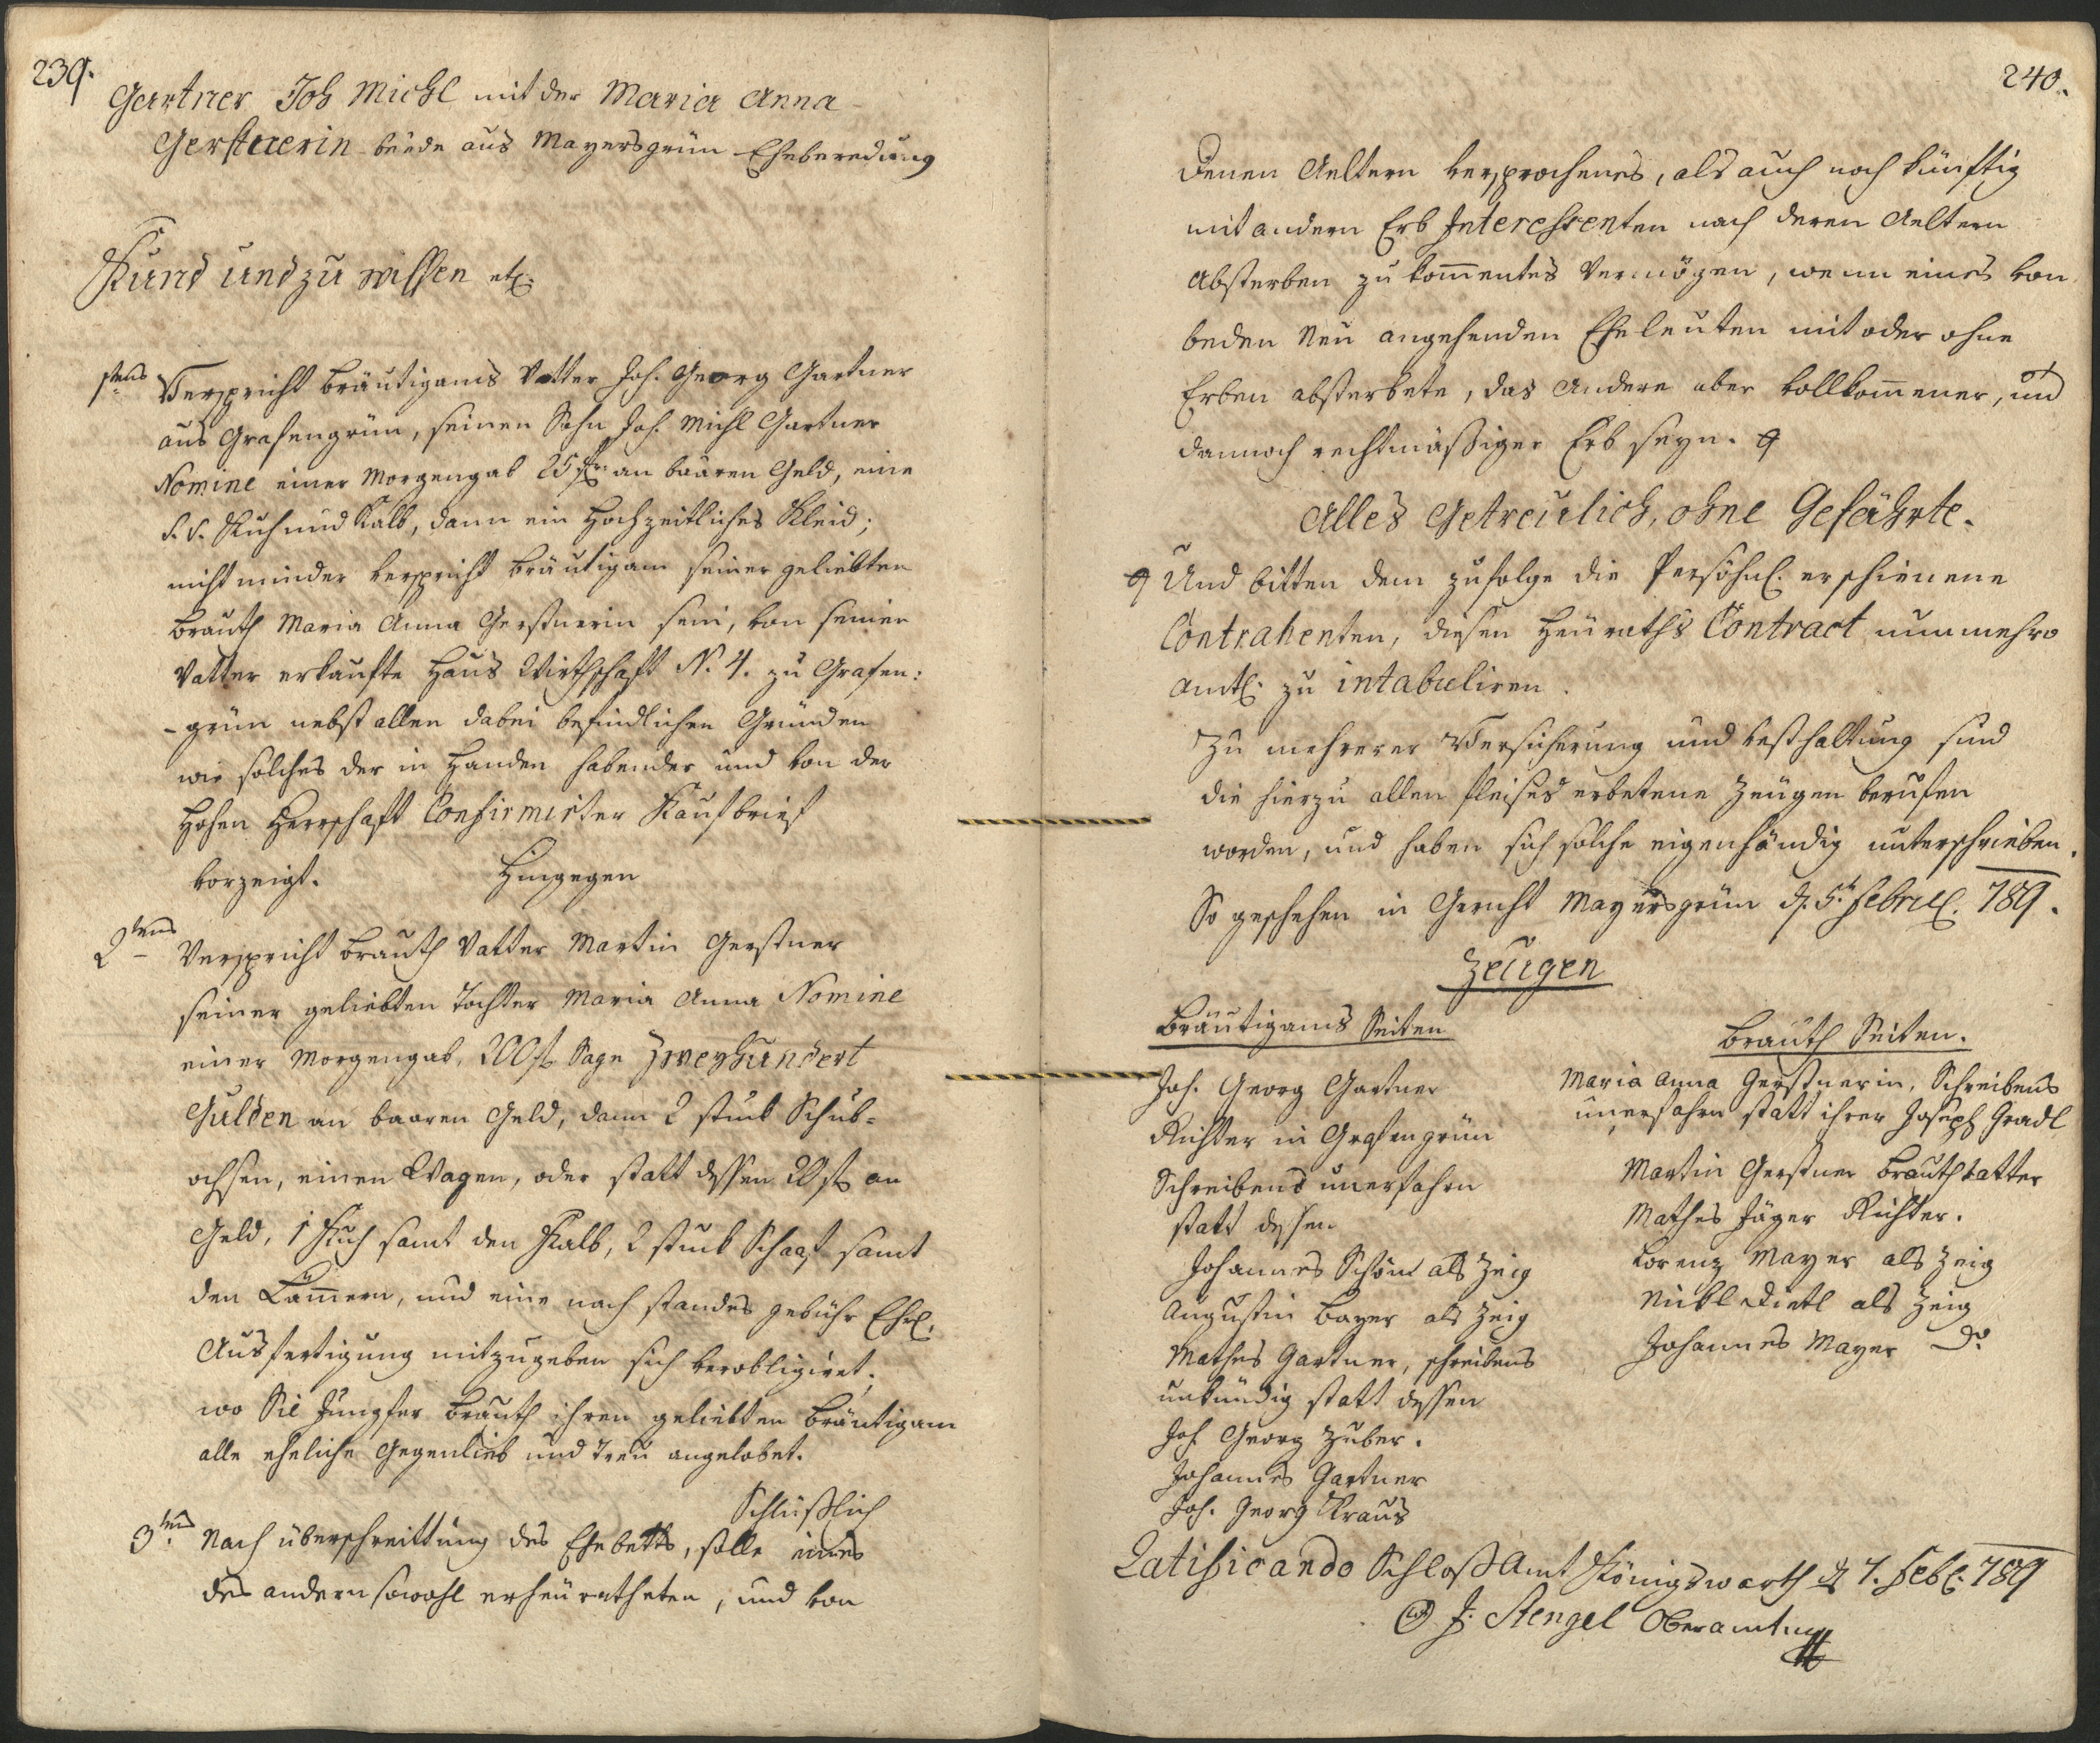 239.
Gartner Joh Michl mit der Maria Anna
Gerstnerin beede aus Mayersgrün Eheberedung
Kund und zu wissen etc:
1tens Verspricht Bräutigams Vatter Joh. Georg Gartner
aus Grafengrün, seinen Sohn Joh. Michl Gartner
Nomine einer Morgengab 25 f an baaren Geld, eine
s. v. Kuh und Kalb, dann ein Hochzeitliches Kleid;
nicht minder verspricht Bräutigam seiner geliebten
Brauth Maria Anna Gerstnerin sein, von seinen
Vatter erkaufte Haus Wirthschaft N. 4. zu Grafen:
-grün nebst allen dabei befindlichen Gründen
wie solches der in Handen habender und von der
Hohen Herrschaft Confirmirter Kaufbrief
vorzeigt. Hingegen
2tens Verspricht Brauth Vatter Martin Gerstner
seiner geliebten Tochter Maria Anna Nomine
einer Morgengab, 200 f Sage Zweyhundert
Gulden an baaren Geld, dann 2 stuck Schub-
ochsen, einen Wagen, oder statt dessen 20 f an
Geld, 1 Kuh samt den Kalb, 2 stuck Schaaf samt
den Lam̄ern, und eine nach standes gebühr Ehrl.
Ausfertigung mitzugeben sich verobligiret;
wo Sie Jungfer Brauth ihren geliebten Bräutigam
alle eheliche Gegenlieb und Treu angelobet.
Schlüßlich
3tens Nach überschreittung des Ehebetts, solle eines
des andern sowohl erheuratheten, und von
240.
denen Aeltern versprochenes, als auch noch künftig
mit andern Erb Interessenten nach deren Aeltern
Absterben zu kom̄entes Vermögen, wenn eines von
beden Neu angehenden Eheleuten mit oder ohne
Erben absterbete, das Andere aber vollkom̄ener, und
dannoch rechtmäßiger Erb seyn.
Alles Getreulich, ohne Gefährte.
Und bitten dem zufolge die Persöhnl. erschienene
Contrahenten, diesen Heuraths Contract nunmehro
amtl. zu intabuliren.
Zu mehrerer Versicherung und Vesthaltung sind
die hierzu allen Fleises erbetene Zeugen berufen
worden, und haben sich solche eigenhändig unterschrieben.
So geschehen in Gericht Mayersgrün d. 5t Februl. 789.
Zeugen
Bräutigams Seiten
Joh. Georg Gartner
Richter in Grafengrün
Schreibens unerfahrn
statt dessen
Johannes Schönl als Zeig
Augustin Bayer als Zeig
Mathes Gartner, schreibens
unkündig statt dessen
Joh. Georg Zuber.
Johannes Gartner
Joh. Georg Kraus
Brauth Seiten.
Maria Anna Gerstnerin, Schreibens
unerfahrn statt ihrer Joseph Gradl
Martin Gerstner Brauthvatter
Mathes Jäger Richter.
Lorenz Mayer als Zeig
Nickl Dietl als Zeig
Johannes Mayer do
Ratificando Schloß Amt Königswarth d 7. Feb. 789
J: Stengel Oberamtm